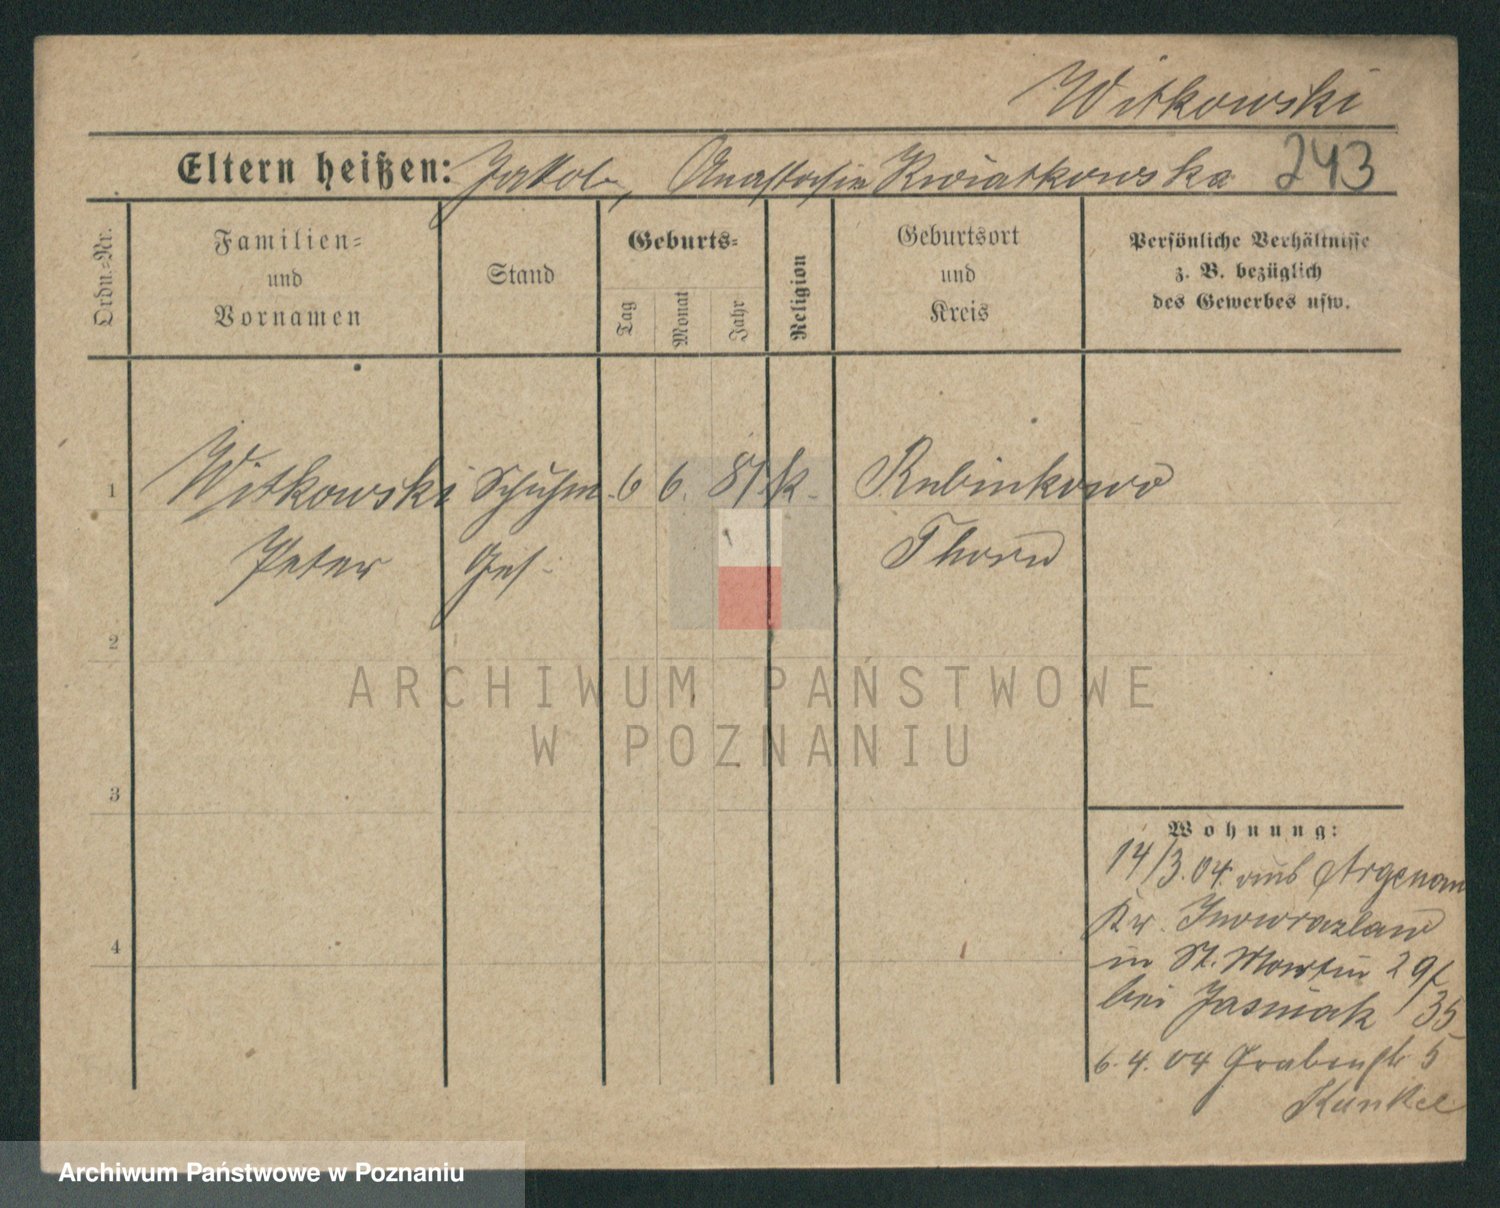 Witkowski
Eltern heißen: Jakob, Anastasia Kwiatkowska 243
Ordn.-Nr.
Familien-
und
Vornamen
Stand
Geburts-
Tag
Monat
Jahr
Religion
Geburtsort
und
Kreis
Persönliche Verhältnisse
z. B. bezüglich
des Gewerbes usw.
1 Witkowski Schuhm. 6 6. 81 k. Rubinkowo
Peter Ges. Thorn
2
3
4
Wohnung:
14/3.04. aus Argenau
Kr. Inowrazlaw
in St. Martin 29
bei Jasniak /35
6.4.04 Grabenstr 5
Kunkel
ARCHIWUM PAŃSTWOWE
W POZNANIU
Archiwum Państwowe w Poznaniu